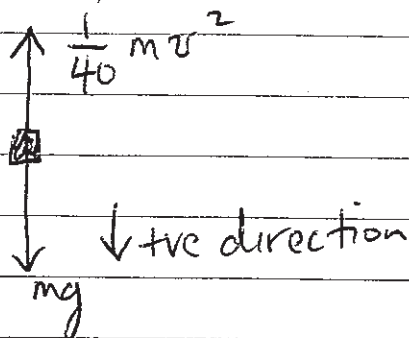 1/40 mv²
↓ +ve direction
mg